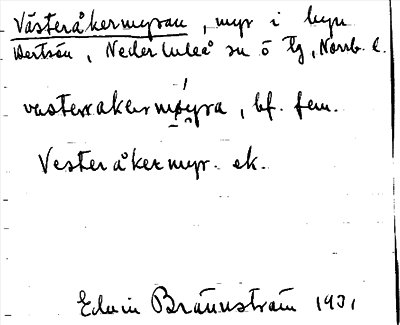 Västeråkermyran, myr i byn
Bertsön, Nederluleå sn ö tg, Norrb. l.
västerakermøyra, bf. fem.
Vesteråkermyr. ek.
Edvin Brännström 1931